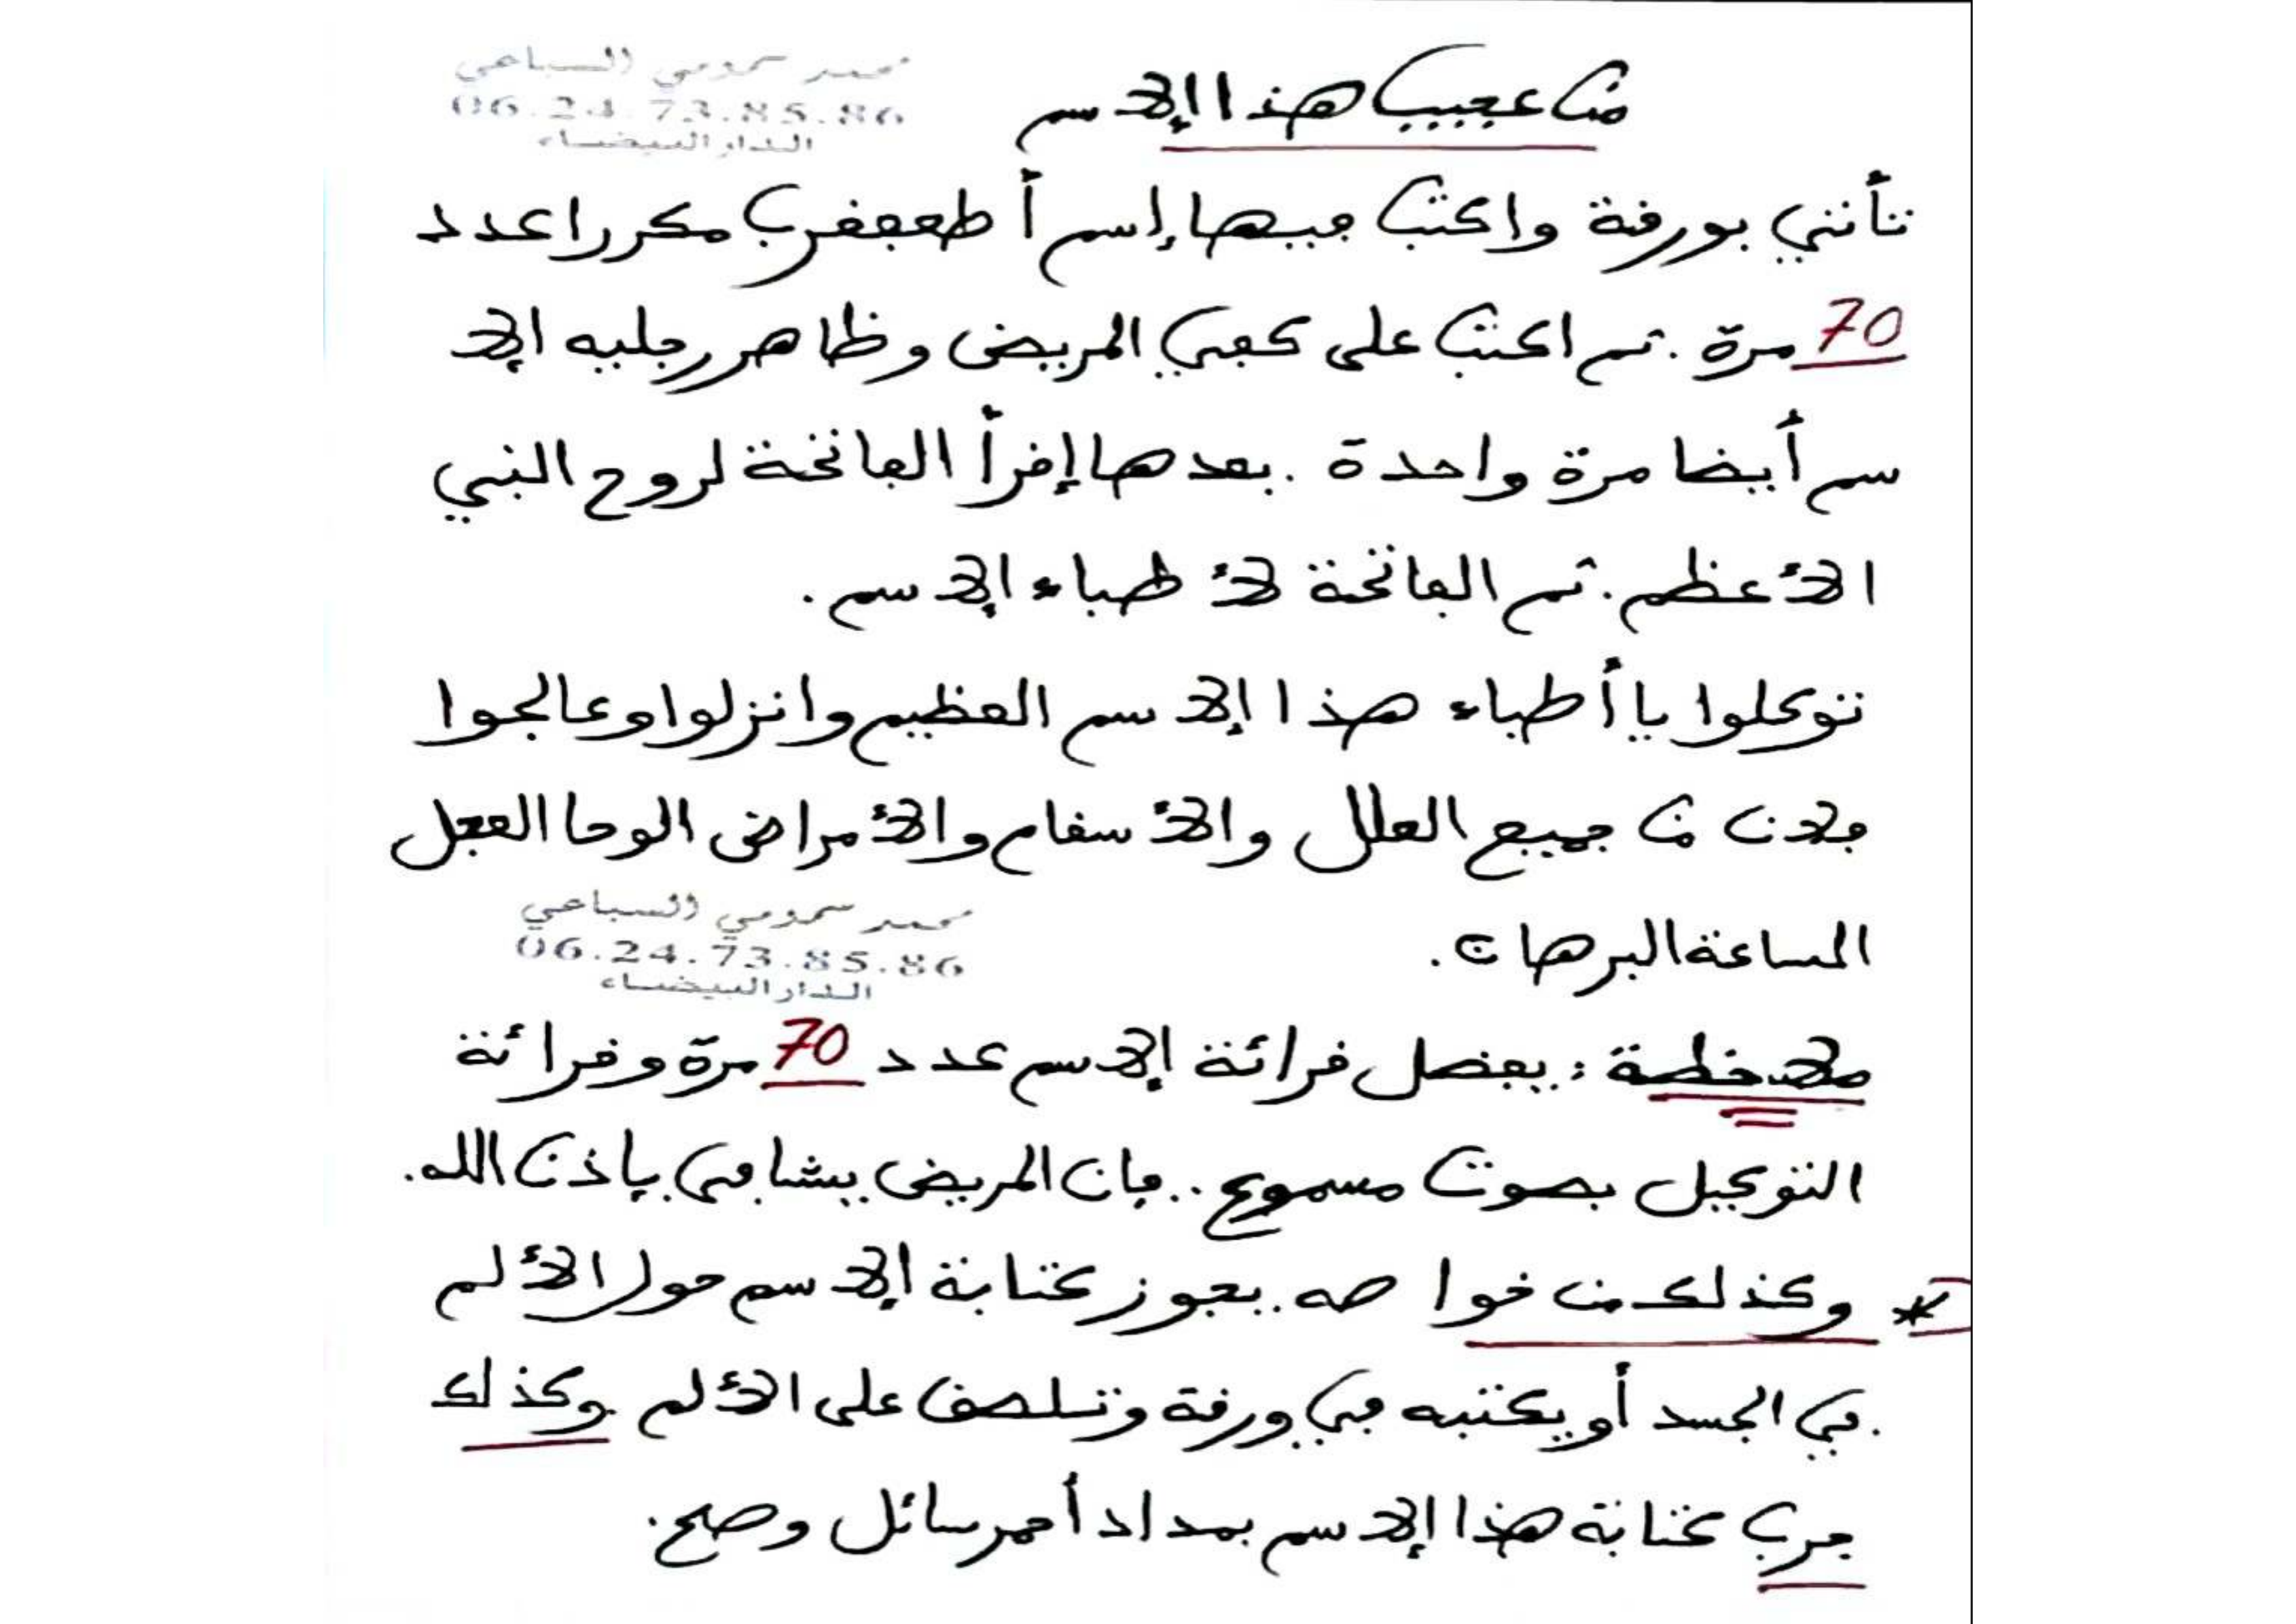 محمد سمومي السباعي
06.24.73.85.86
الدار البيضاء
من عجيب هذا الإسم
تأتي بورقة واكتب فيها إسم أطعجفرب مكررا عدد
70 مرة . تم اكتب على كفي المريض وظاهر رجليه الإ
سم أيضا مرة واحدة . بعدها إقرأ الفاتحة لروح النبي
الأعظم . تم الفاتحة لأطباء الإسم .
توكلوا يا أطباء هذا الإسم العظيم وانزلوا وعالجوا
فلان من جميع العلل والأسقام والأمراض الوحا العجل
الساعة البرهان .
محمد سمومي السباعي
06.24.73.85.86
الدار البيضاء
ملاحظة : يفضل قرائة الإسم عدد 70 مرة وقرائة
التوكيل بصوت مسموع .. فإن المريض يشافى بإذن الله .
* وكذلك من خواصه . يجوز كتابة الإسم حول الألم
في الجسد أو يكتبه في ورقة وتلصق على الألم . وكذلك
جرب كتابة هذا الإسم بمداد أحمر سائل وصح .